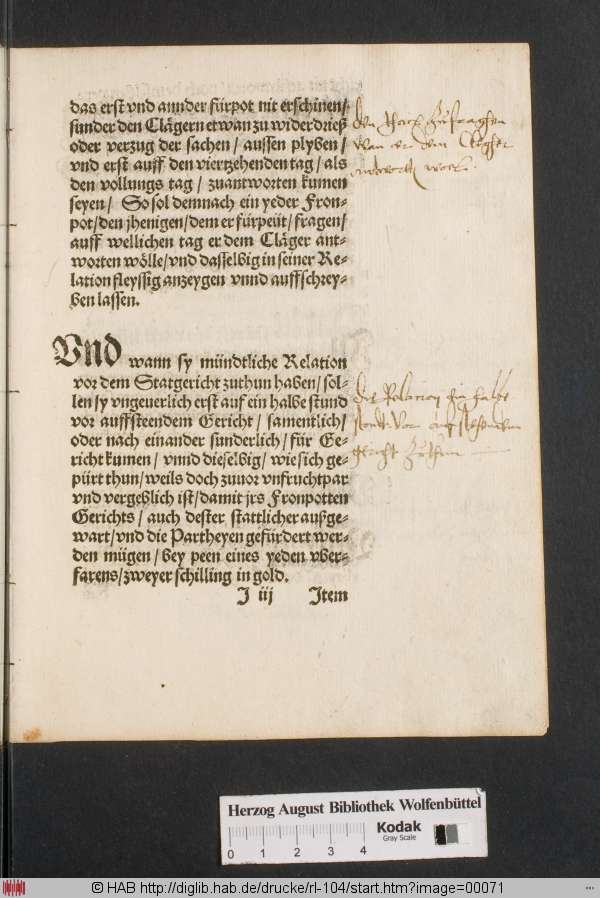 das erst vnd annder fürpot nit erschinen/
sunder den Clägern etwan zu widerdrieß
oder verzug der sachen/ aussen plyben/
vnd erst auff den viertzehenden tag/ als
den vollungs tag/ zuantworten kumen
seyen/ So sol demnach ein yeder Fron-
pot/ den jhenigen/ dem er fürpeüt/ fragen/
auff wellichen tag er dem Cläger ant-
worten wölle/ vnd dasselbig in seiner Re-
lation fleyssig anzeygen vnnd auffschrey-
ben lassen.
den
Wan er dem Cleger
Vnd wann sy mündtliche Relation
vor dem Statgericht zuthun haben/ sol-
len sy vngeuerlich erst auf ein halbe stund
vor auffsteendem Gericht/ samentlich/
oder nach einander sunderlich/ für Ge-
richt kumen/ vnnd dieselbig/ wie sich ge-
pürt thun/ weils doch zuuor vnfruchtpar
vnd vergeblich ist/ damit jrs Fronpotten
Gerichts/ auch dester stattlicher außge-
wart/ vnd die Partheyen gefürdert wer-
den mügen/ bey peen eines yeden vber-
farens/ zweyer schilling in gold.
Die Relacion ein halbe
stundt vor auffstehenden
gericht zuthun
J iij Item
Herzog August Bibliothek Wolfenbüttel
0 1 2 3 4 Kodak
Gray Scale
© HAB http://diglib.hab.de/drucke/rl-104/start.htm?image=00071